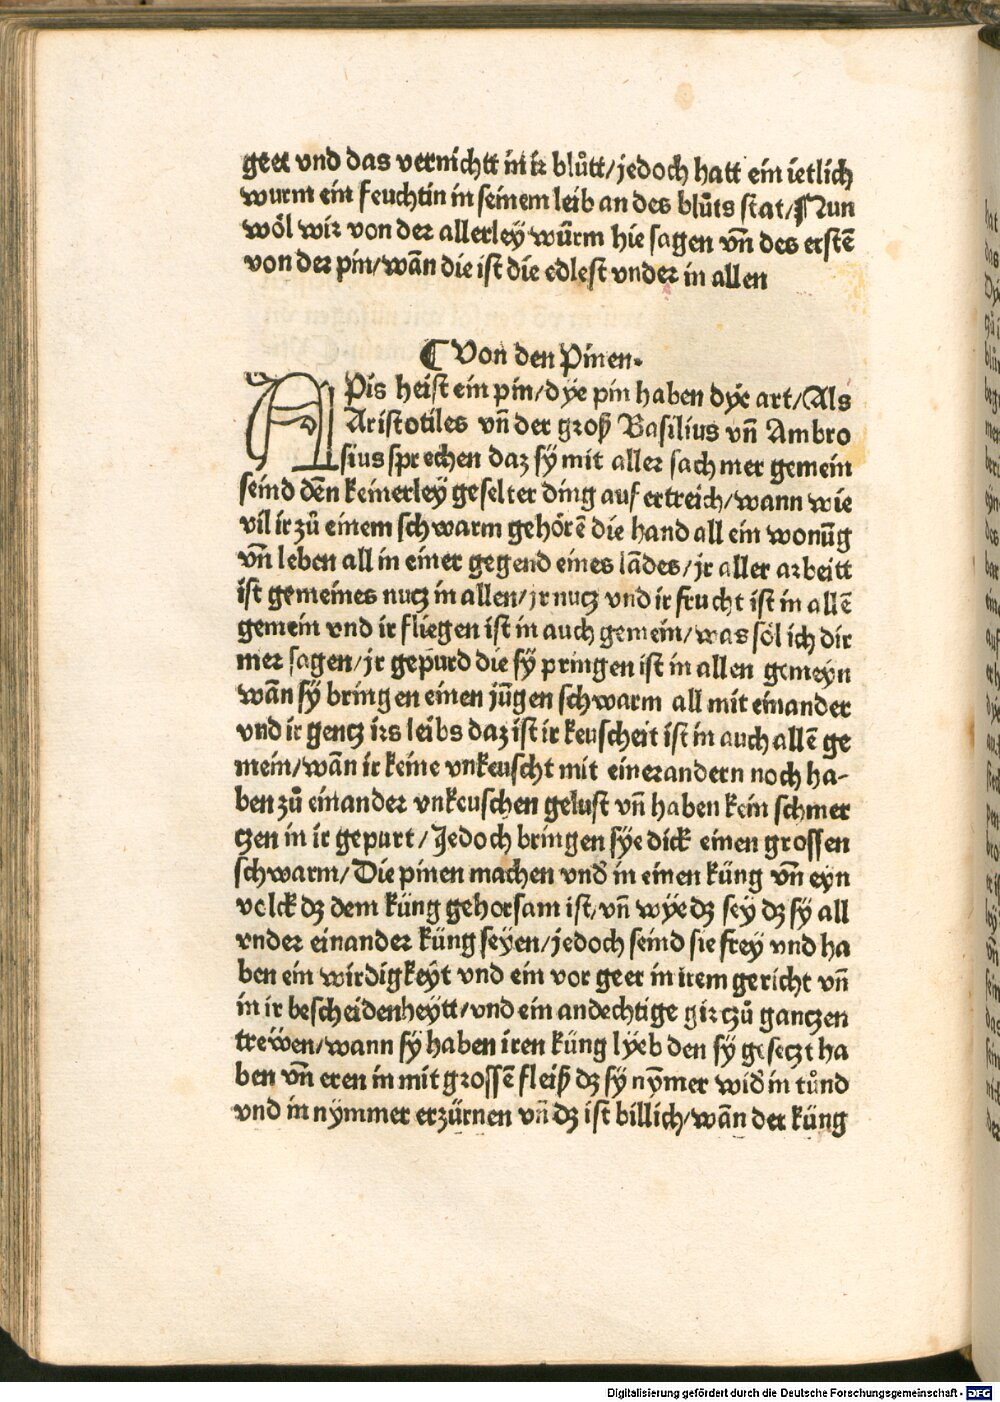 geet vnd das vernichtt in ir blůtt/jedoch hatt ein ietlich
wurm ein feuchtin in seinem leib an des blůts stat/Nun
wöl wir von der allerley würm hie sagen vn̄ des erstē
von der pin/wān die ist die edlest vnder in allen
⸿ Von den Pinen.
APis heist ein pin/dye pin haben dye art/Als
Aristotiles vn̄ der groß Basilius vn̄ Ambro
sius sprechen daz sÿ mit aller sach mer gemein
seind dēn keinerleÿ geselter ding auf ertreich/wann wie
vil ir zů einem schwarm gehörē die hand all ein wonūg
vn̄ leben all in einer gegend eines lādes/jr aller arbeitt
ist gemeines nutz in allen/jr nutz vnd ir frucht ist in allē
gemein vnd ir fliegen ist in auch gemein/was söl ich dir
mer sagen/jr gepurd die sÿ pringen ist in allen gemeyn
wān sÿ bringen einen jūgen schwarm all mit einander
vnd ir gentz irs leibs daz ist ir keuscheit ist in auch allē ge
mein/wān ir keine vnkeuscht mit einerandern noch ha-
ben zů einander vnkeuschen gelust vn̄ haben kein schmer
tzen in ir gepurt/Jedoch bringen sÿe dick einen grossen
schwarm/Die pinen machen vnd̓ in einen küng vn̄ eyn
volck dz dem küng gehorsam ist/vn̄ wÿe dz sey dz sÿ all
vnder einander küng seÿen/jedoch seind sie freÿ vnd ha
ben ein wirdigkeÿt vnd ein vor geer in irem gericht vn̄
in ir bescheidenheÿtt/vnd ein andechtige gir tzů gantzen
trewen/wann sÿ haben iren küng lÿeb den sÿ gesetzt ha
ben vn̄ eren in mit grossē fleiß dz sÿ nȳmer wid̓ in tůnd
vnd in nÿmmer erzürnen vn̄ dz ist billich/wān der küng
Digitalisierung gefördert durch die Deutsche Forschungsgemeinschaft - DFG